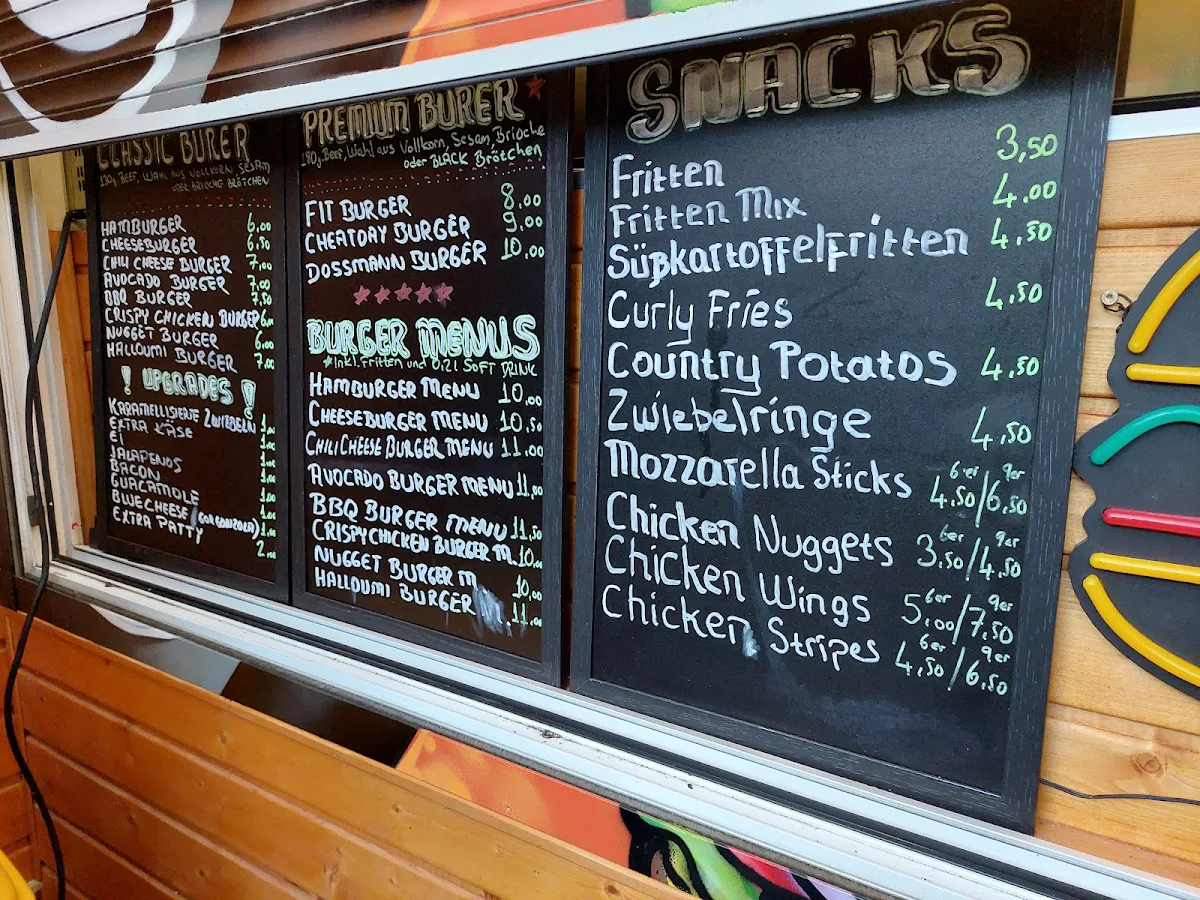 CLASSIC BURER
130g BEEF, WAHL AUS VOLLKORN, SESAM
ODER BRIOCHE BRÖTCHEN
HAMBURGER 6,00
CHEESEBURGER 6,50
CHILI CHEESE BURGER 7,00
AVOCADO BURGER 7,00
BBQ BURGER 7,50
CRISPY CHICKEN BURGER 6,00
NUGGET BURGER 6,00
HALLOUMI BURGER 7,00
! UPGRADES !
KARAMELLISIERTE ZWIEBELN 1,00
EXTRA KÄSE 1,00
EI 1,00
JALAPENOS 1,00
BACON 1,00
GUACAMOLE 1,00
BLUECHEESE (GORGONZOLA) 1,00
EXTRA PATTY 2,00
PREMIUM BURER
180g Beef, Wahl aus Vollkorn, Sesam, Brioche
oder BLACK Brötchen
FIT BURGER 8,00
CHEATDAY BURGER 9,00
DOSSMANN BURGER 10,00
BURGER MENUS
*Inkl. Fritten und 0,2l SOFT DRINK
HAMBURGER MENU 10,00
CHEESEBURGER MENU 10,50
CHILI CHEESE BURGER MENU 11,00
AVOCADO BURGER MENU 11,00
BBQ BURGER MENU 11,50
CRISPY CHICKEN BURGER M. 10,00
NUGGET BURGER M 10,00
HALLOUMI BURGER 11,00
SNACKS
Fritten 3,50
Fritten Mix 4,00
Süßkartoffelfritten 4,50
Curly Fries 4,50
Country Potatos 4,50
Zwiebelringe 4,50
Mozzarella Sticks 6er 4,50/9er 6,50
Chicken Nuggets 6er 3,50/9er 4,50
Chicken Wings 6er 5,00/9er 7,50
Chicken Stripes 6er 4,50/9er 6,50